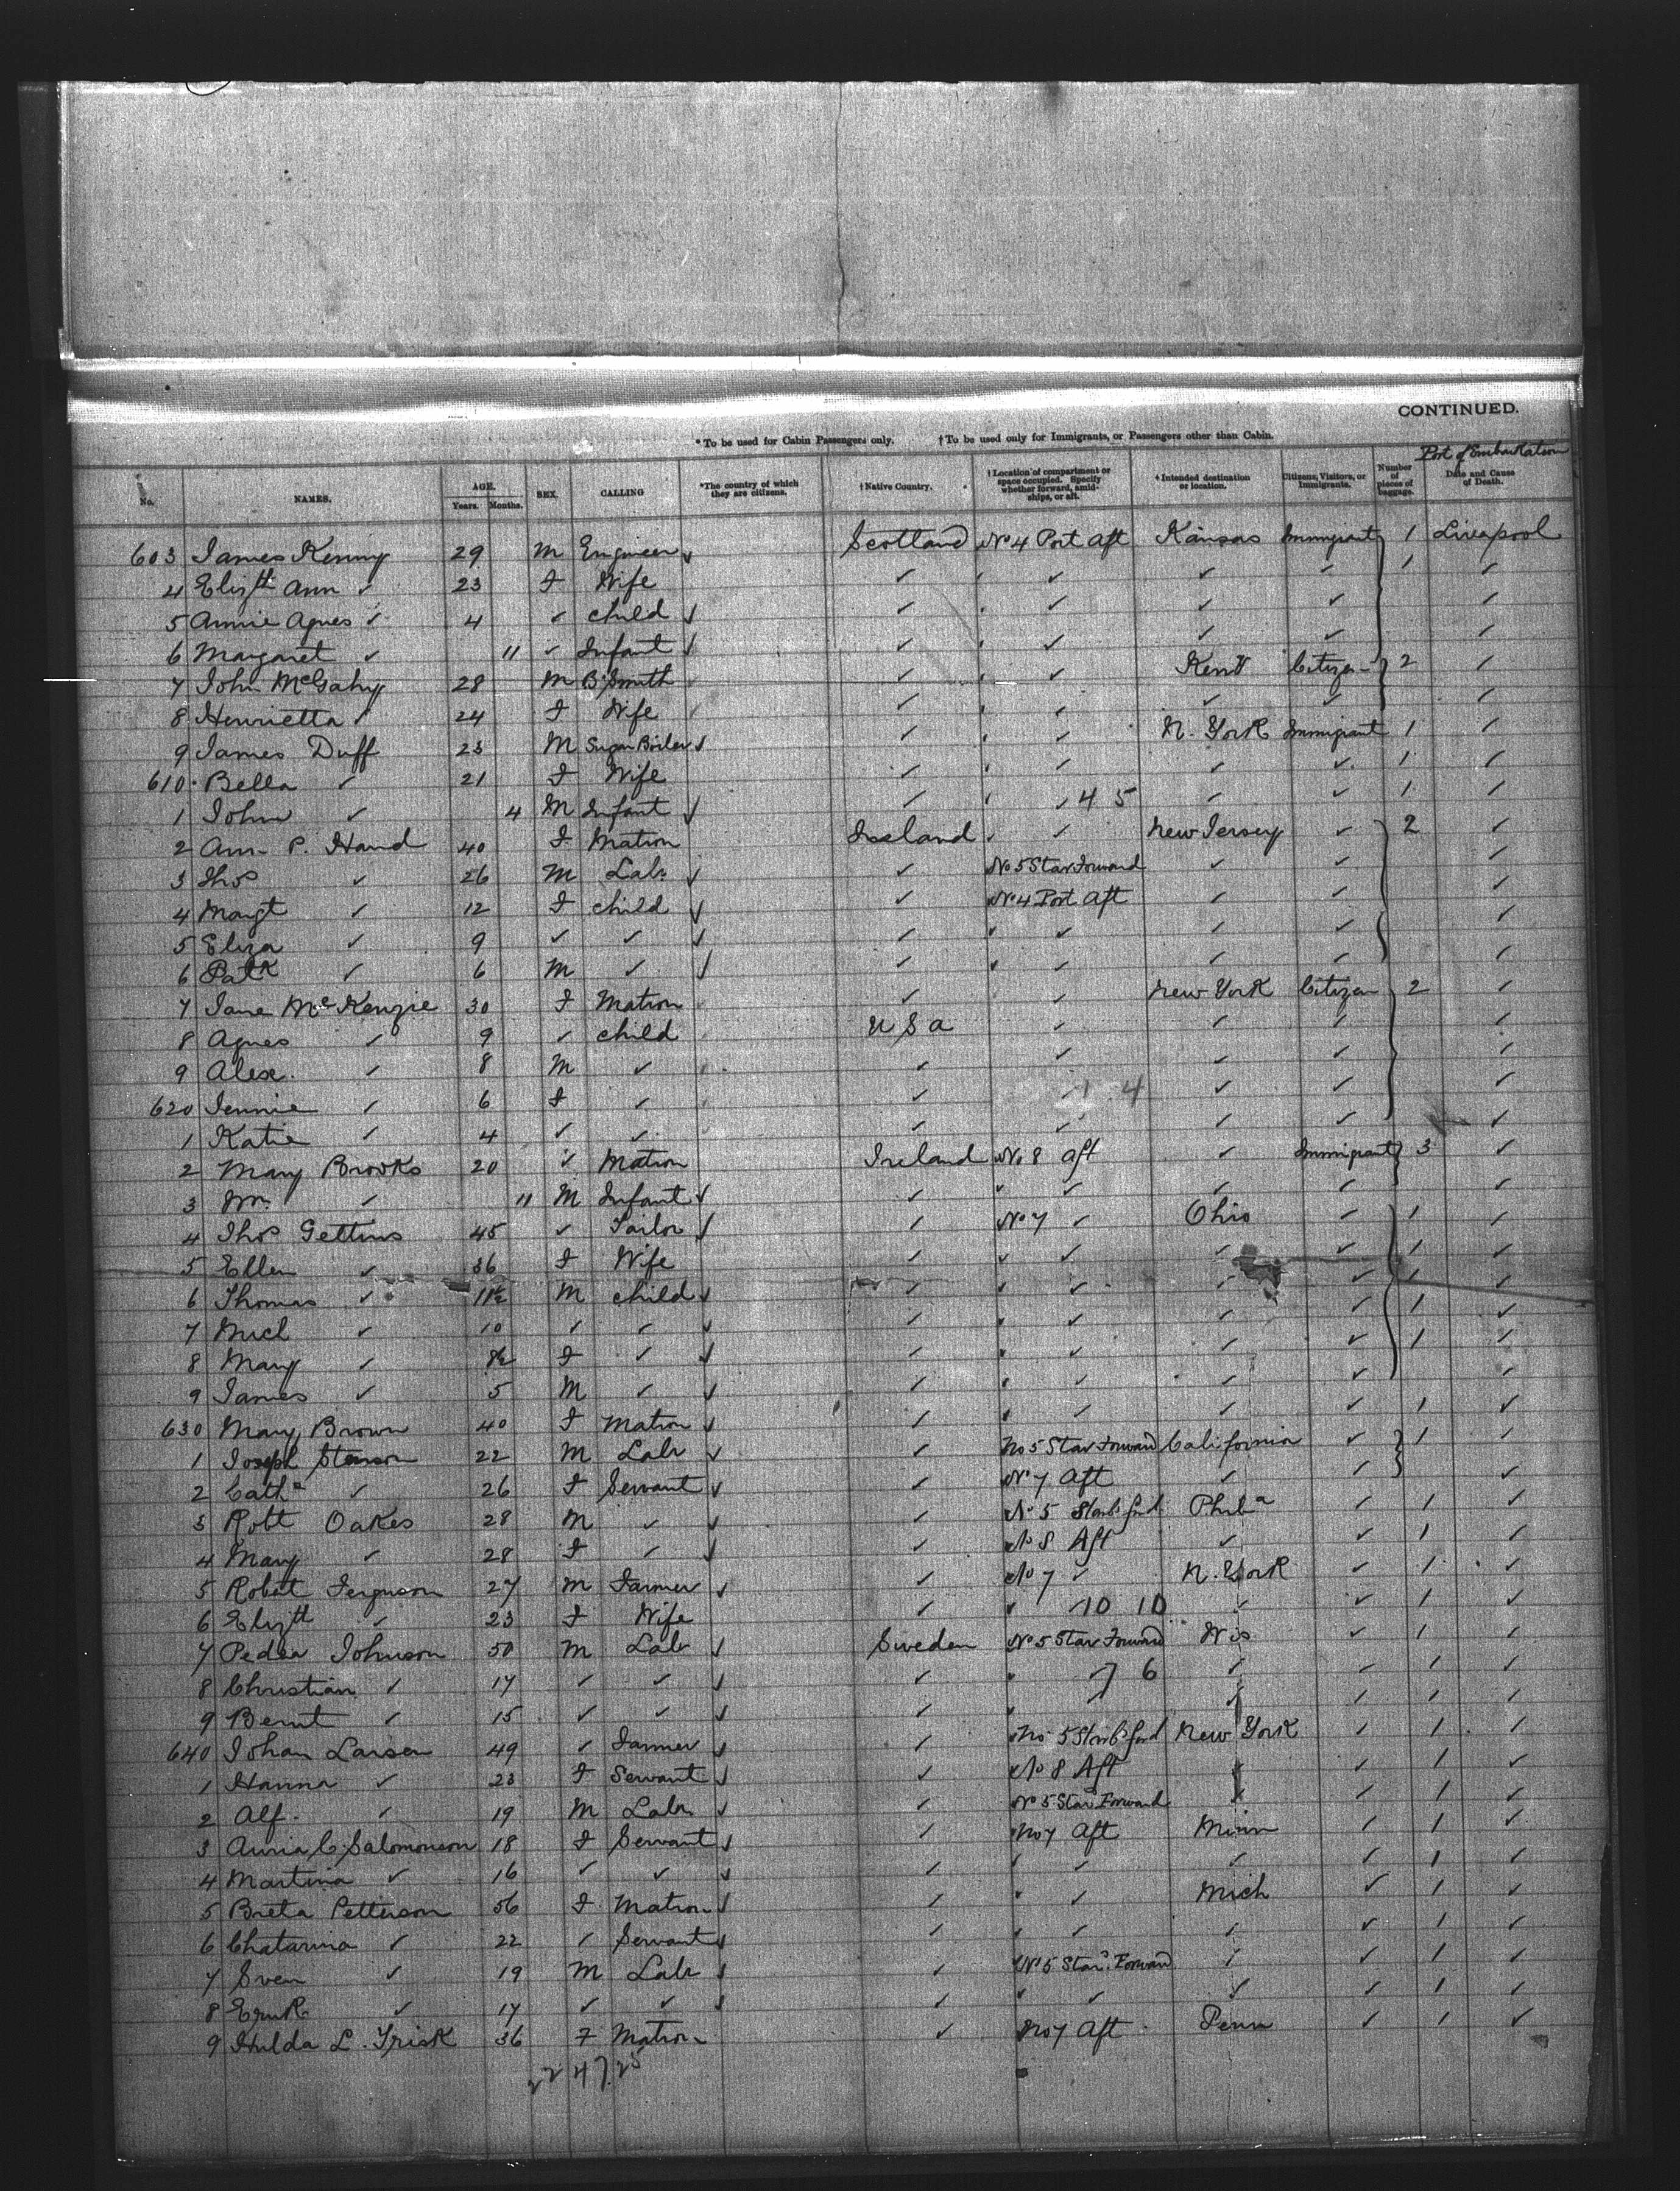 CONTINUED.
*To be used for Cabin Passengers only. †To be used only for Immigrants, or Passengers other than Cabin.
Port of Embarkation
No. NAMES. AGE. Years. Months. SEX. CALLING *The country of which they are citizens. †Native Country. †Location of compartment or space occupied. Specify whether forward, amidships, or aft. †Intended destination or location. Citizens, Visitors, or Immigrants. Number of pieces of baggage. Date and Cause of Death.
603 James Kenny 29 M Engineer ✓ Scotland No 4 Port Aft Kansas Immigrant 1 Liverpool
4 Elizth Ann ✓ 23 F Wife ✓ ✓ ✓ ✓ 1 ✓
5 Annie Agnes ✓ 4 ✓ child ✓ ✓ ✓ ✓ ✓ ✓
6 Margaret ✓ 11 ✓ Infant ✓ ✓ ✓ ✓ ✓ ✓
7 John McGahy 28 M B'Smith ✓ ✓ Citizen 2 ✓
8 Henrietta ✓ 24 F Wife ✓ ✓ ✓ ✓ ✓
9 James Duff 23 M Sugar Boiler ✓ ✓ ✓ N. York Immigrant 1 ✓
610 Bella ✓ 21 F Wife ✓ ✓ ✓ ✓ 1 ✓
1 John ✓ 4 M Infant ✓ ✓ ✓ 4 5 ✓ ✓ 1 ✓
2 Ann P. Hand 40 F Matron Ireland ✓ New Jersey ✓ 2 ✓
3 Thos ✓ 26 M Labr ✓ ✓ No 5 Star Forward ✓ ✓ ✓
4 Margt ✓ 12 F child ✓ ✓ No 4 Port Aft ✓ ✓ ✓
5 Eliza ✓ 9 ✓ ✓ ✓ ✓ ✓ ✓ ✓ ✓
6 Patk ✓ 6 M ✓ ✓ ✓ ✓ ✓ ✓ ✓
7 Jane McKenzie 30 F Matron ✓ ✓ New York Citizen 2 ✓
8 Agnes ✓ 9 ✓ child U S A ✓ ✓ ✓ ✓
9 Alex. ✓ 8 M ✓ ✓ ✓ ✓ ✓ ✓
620 Jennie ✓ 6 F ✓ ✓ 1 4 ✓ ✓ ✓
1 Katie ✓ 4 ✓ ✓ ✓ ✓ ✓ ✓ ✓
2 Mary Brooks 20 ✓ Matron Ireland No 8 Aft ✓ Immigrant 3 ✓
3 Wm. ✓ 11 M Infant ✓ ✓ ✓ ✓ ✓ ✓
4 Thos Gettins 45 ✓ Tailor ✓ ✓ No 7 ✓ Ohio ✓ 1 ✓
5 Ellen ✓ 36 F Wife ✓ ✓ ✓ ✓ ✓ 1 ✓
6 Thomas ✓ 11½ M child ✓ ✓ ✓ ✓ ✓ ✓ 1 ✓
7 Micl ✓ 10 ✓ ✓ ✓ ✓ ✓ ✓ ✓ 1 ✓
8 Mary ✓ 8½ F ✓ ✓ ✓ ✓ ✓ ✓ 1 ✓
9 James ✓ 5 M ✓ ✓ ✓ ✓ ✓ ✓ ✓
630 Mary Brown 40 F Matron ✓ ✓ ✓ ✓ ✓ 1 ✓
1 Joseph 22 M Labr ✓ ✓ No 5 Star Forward California ✓ 1 ✓
2 Cathe ✓ 26 F Servant ✓ ✓ No 7 Aft ✓ ✓ ✓
3 Robt Oakes 28 M ✓ ✓ ✓ No 5 Starb fwd Phila ✓ 1 ✓
4 Mary ✓ 28 F ✓ ✓ ✓ No 8 Aft ✓ ✓ 1 ✓
5 Robert Ferguson 27 M Farmer ✓ ✓ No 7 ✓ N. York ✓ 1 ✓
6 Elizth ✓ 23 F Wife ✓ ✓ 10 10 ✓ ✓ 1 ✓
7 Peder Johnson 50 M Labr ✓ Sweden No 5 Star Forward Wis ✓ 1 ✓
8 Christian ✓ 17 ✓ ✓ ✓ ✓ 7 6 ✓ ✓ 1 ✓
9 Bernt ✓ 15 ✓ ✓ ✓ ✓ ✓ ✓ 1 ✓
640 Johan Larsen 49 ✓ Farmer ✓ ✓ No 5 Starb fwd New York ✓ 1 ✓
1 Hanna ✓ 23 F Servant ✓ ✓ No 8 Aft ✓ ✓ 1 ✓
2 Alf. ✓ 19 M Labr ✓ ✓ No 5 Star Forward ✓ ✓ 1 ✓
3 Anna C Salomonson 18 F Servant ✓ ✓ No 7 Aft Minn ✓ 1 ✓
4 Martina ✓ 16 ✓ ✓ ✓ ✓ ✓ ✓ ✓ ✓ 1 ✓
5 Breta Petterson 56 F Matron ✓ ✓ ✓ Mich ✓ 1 ✓
6 Chatarina ✓ 22 ✓ Servant ✓ ✓ ✓ ✓ ✓ ✓ 1 ✓
7 Sven ✓ 19 M Labr ✓ ✓ No 5 Star. Forward ✓ ✓ 1 ✓
8 ✓ 17 ✓ ✓ ✓ ✓ ✓ ✓ ✓ ✓ 1 ✓
9 Hulda L. Frisk 36 F Matron ✓ No 7 Aft Penn ✓ 1 ✓
22 47.25